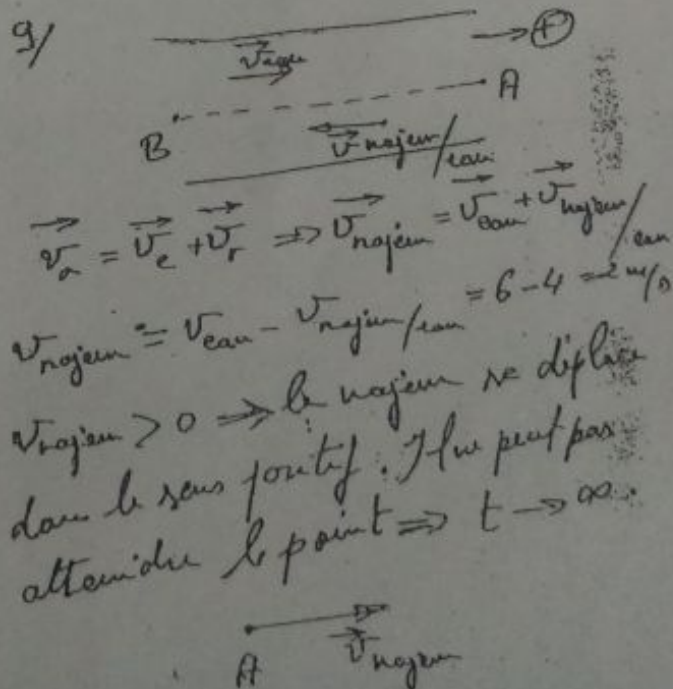 9/
→ ⊕
v⃗eau
A
B
v⃗nageur/eau
v⃗a = v⃗e + v⃗r ⇒ v⃗nageur = v⃗eau + v⃗nageur/eau
vnageur = veau - vnageur/eau = 6-4 = 2 m/s
vnageur > 0 ⇒ le nageur se déplace
dans le sens positif. Il ne peut pas
atteindre le point ⇒ t → ∞.
A
v⃗nageur